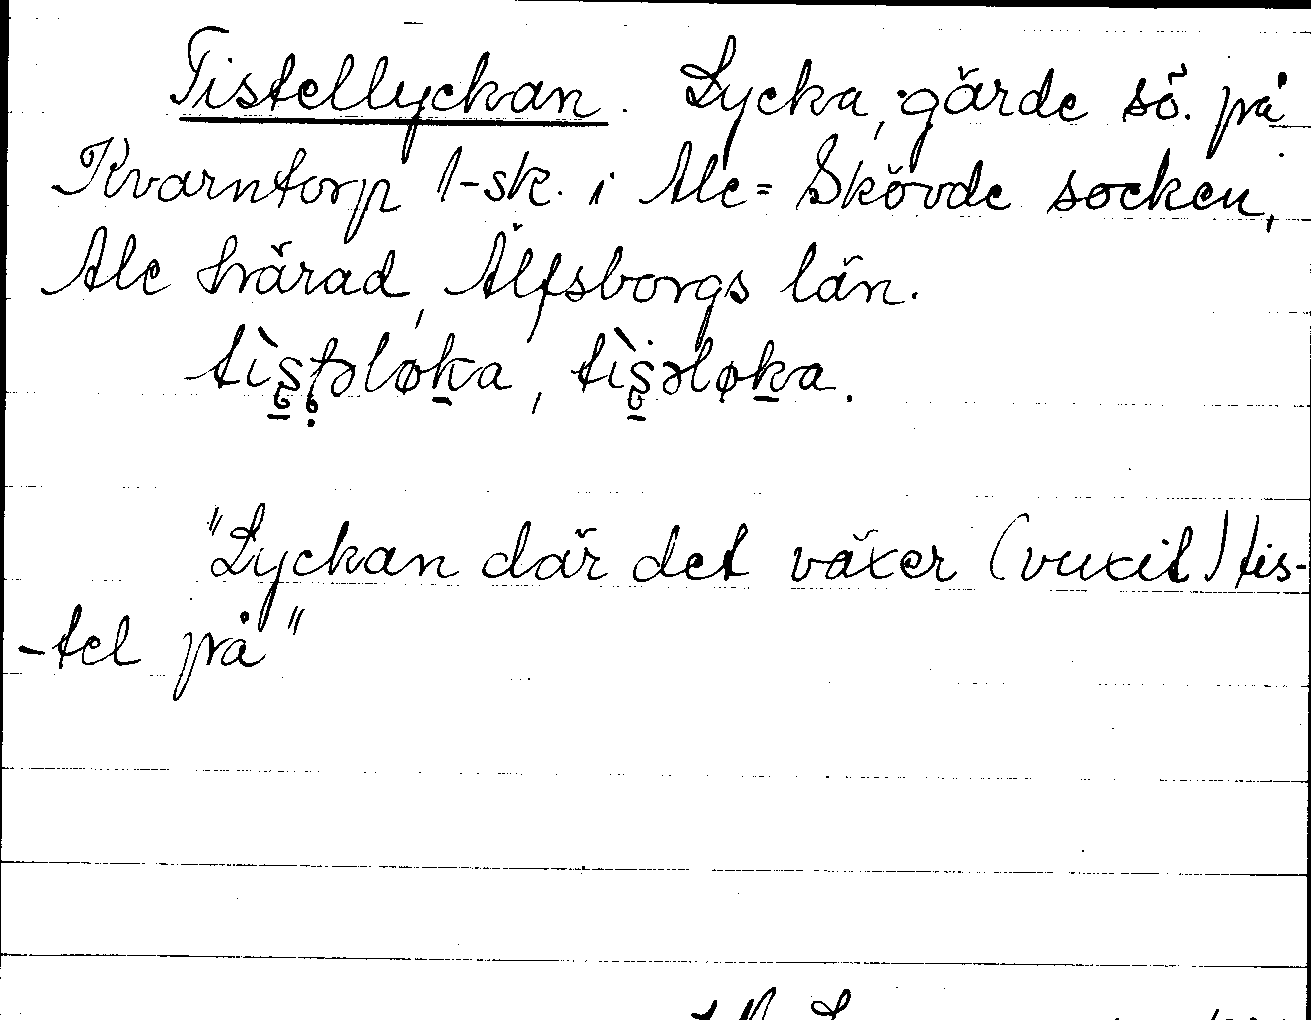 Tistellyckan. Lycka, gärde sö. på
Kvarntorp 1-sk. i Ale-Skövde socken,
Ale härad, Älfsborgs län.
tìstəløka, tìsəløka.
"Lyckan där det växer (vuxit) tis-
-tel på"